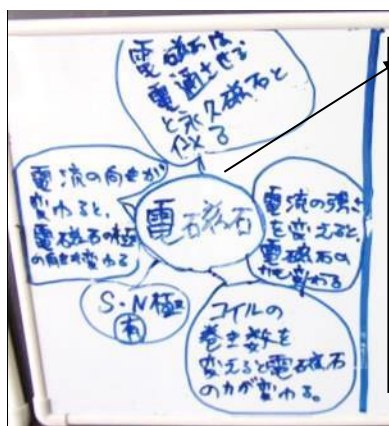 電磁石は、
電通させる
と永久磁石と
似る
電流の向きが
変わると、
電磁石の極
の向きが変わる
電磁石
電流の強さ
を変えると、
電磁石の
力も変わる
S・N極
有
コイルの
巻き数を
変えると電磁石
の力が変わる。